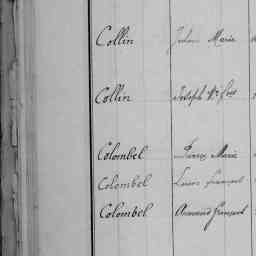 Collin Julien Marie
Collin Joseph
Colombel Pierre Marie
Colombel Louis François
Colombel Armand François